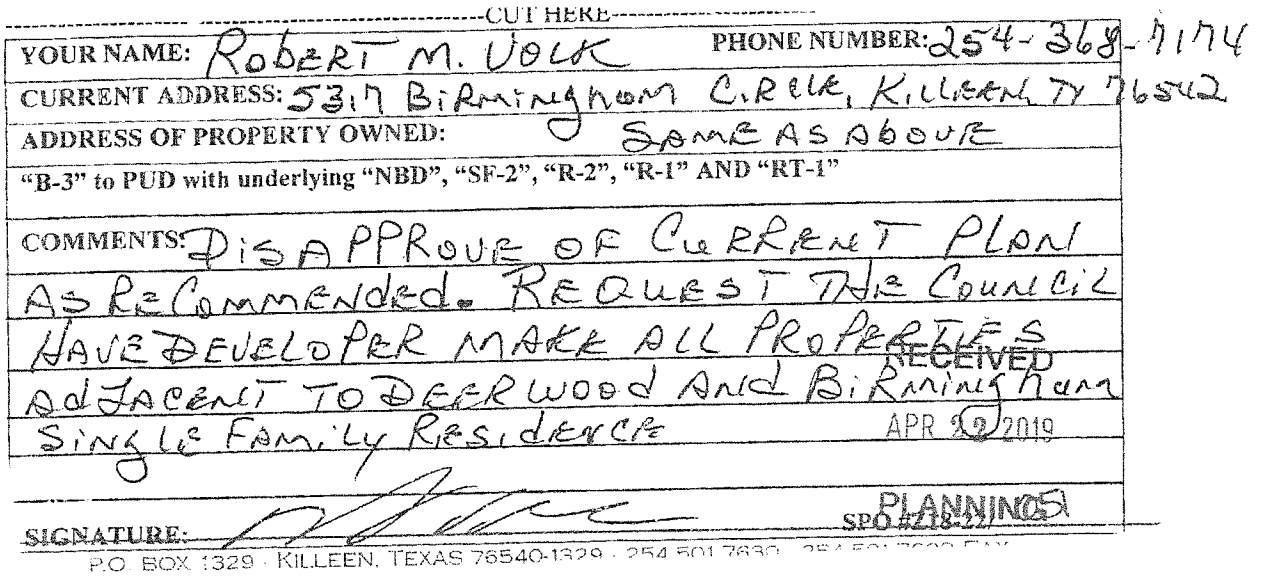 CUT HERE
YOUR NAME: RobERT M. VOLK PHONE NUMBER: 254-368-7174
CURRENT ADDRESS: 5317 BiRMiNgHam CiRClE, KiLLEEN, TX 76542
ADDRESS OF PROPERTY OWNED: SAME AS AbOVE
“B-3” to PUD with underlying “NBD”, “SF-2”, “R-2”, “R-1” AND “RT-1”
COMMENTS: DiSAPPROVE OF CuRRENT PLAN
AS RECOMMENdEd. REQUEST THE COUNCiL
HAVE DEVELOPER MAKE ALL PROPERTIES
RECEIVED
AdJACENT TO DEERWOOd ANd BiRMiNgHam
SiNgLE FAMiLY RESidENCE
APR 22 2019
PLANNING
SIGNATURE: SPO #Z18-22/
P.O. BOX 1329 · KILLEEN, TEXAS 76540-1329 · 254 501 7630 · FAX